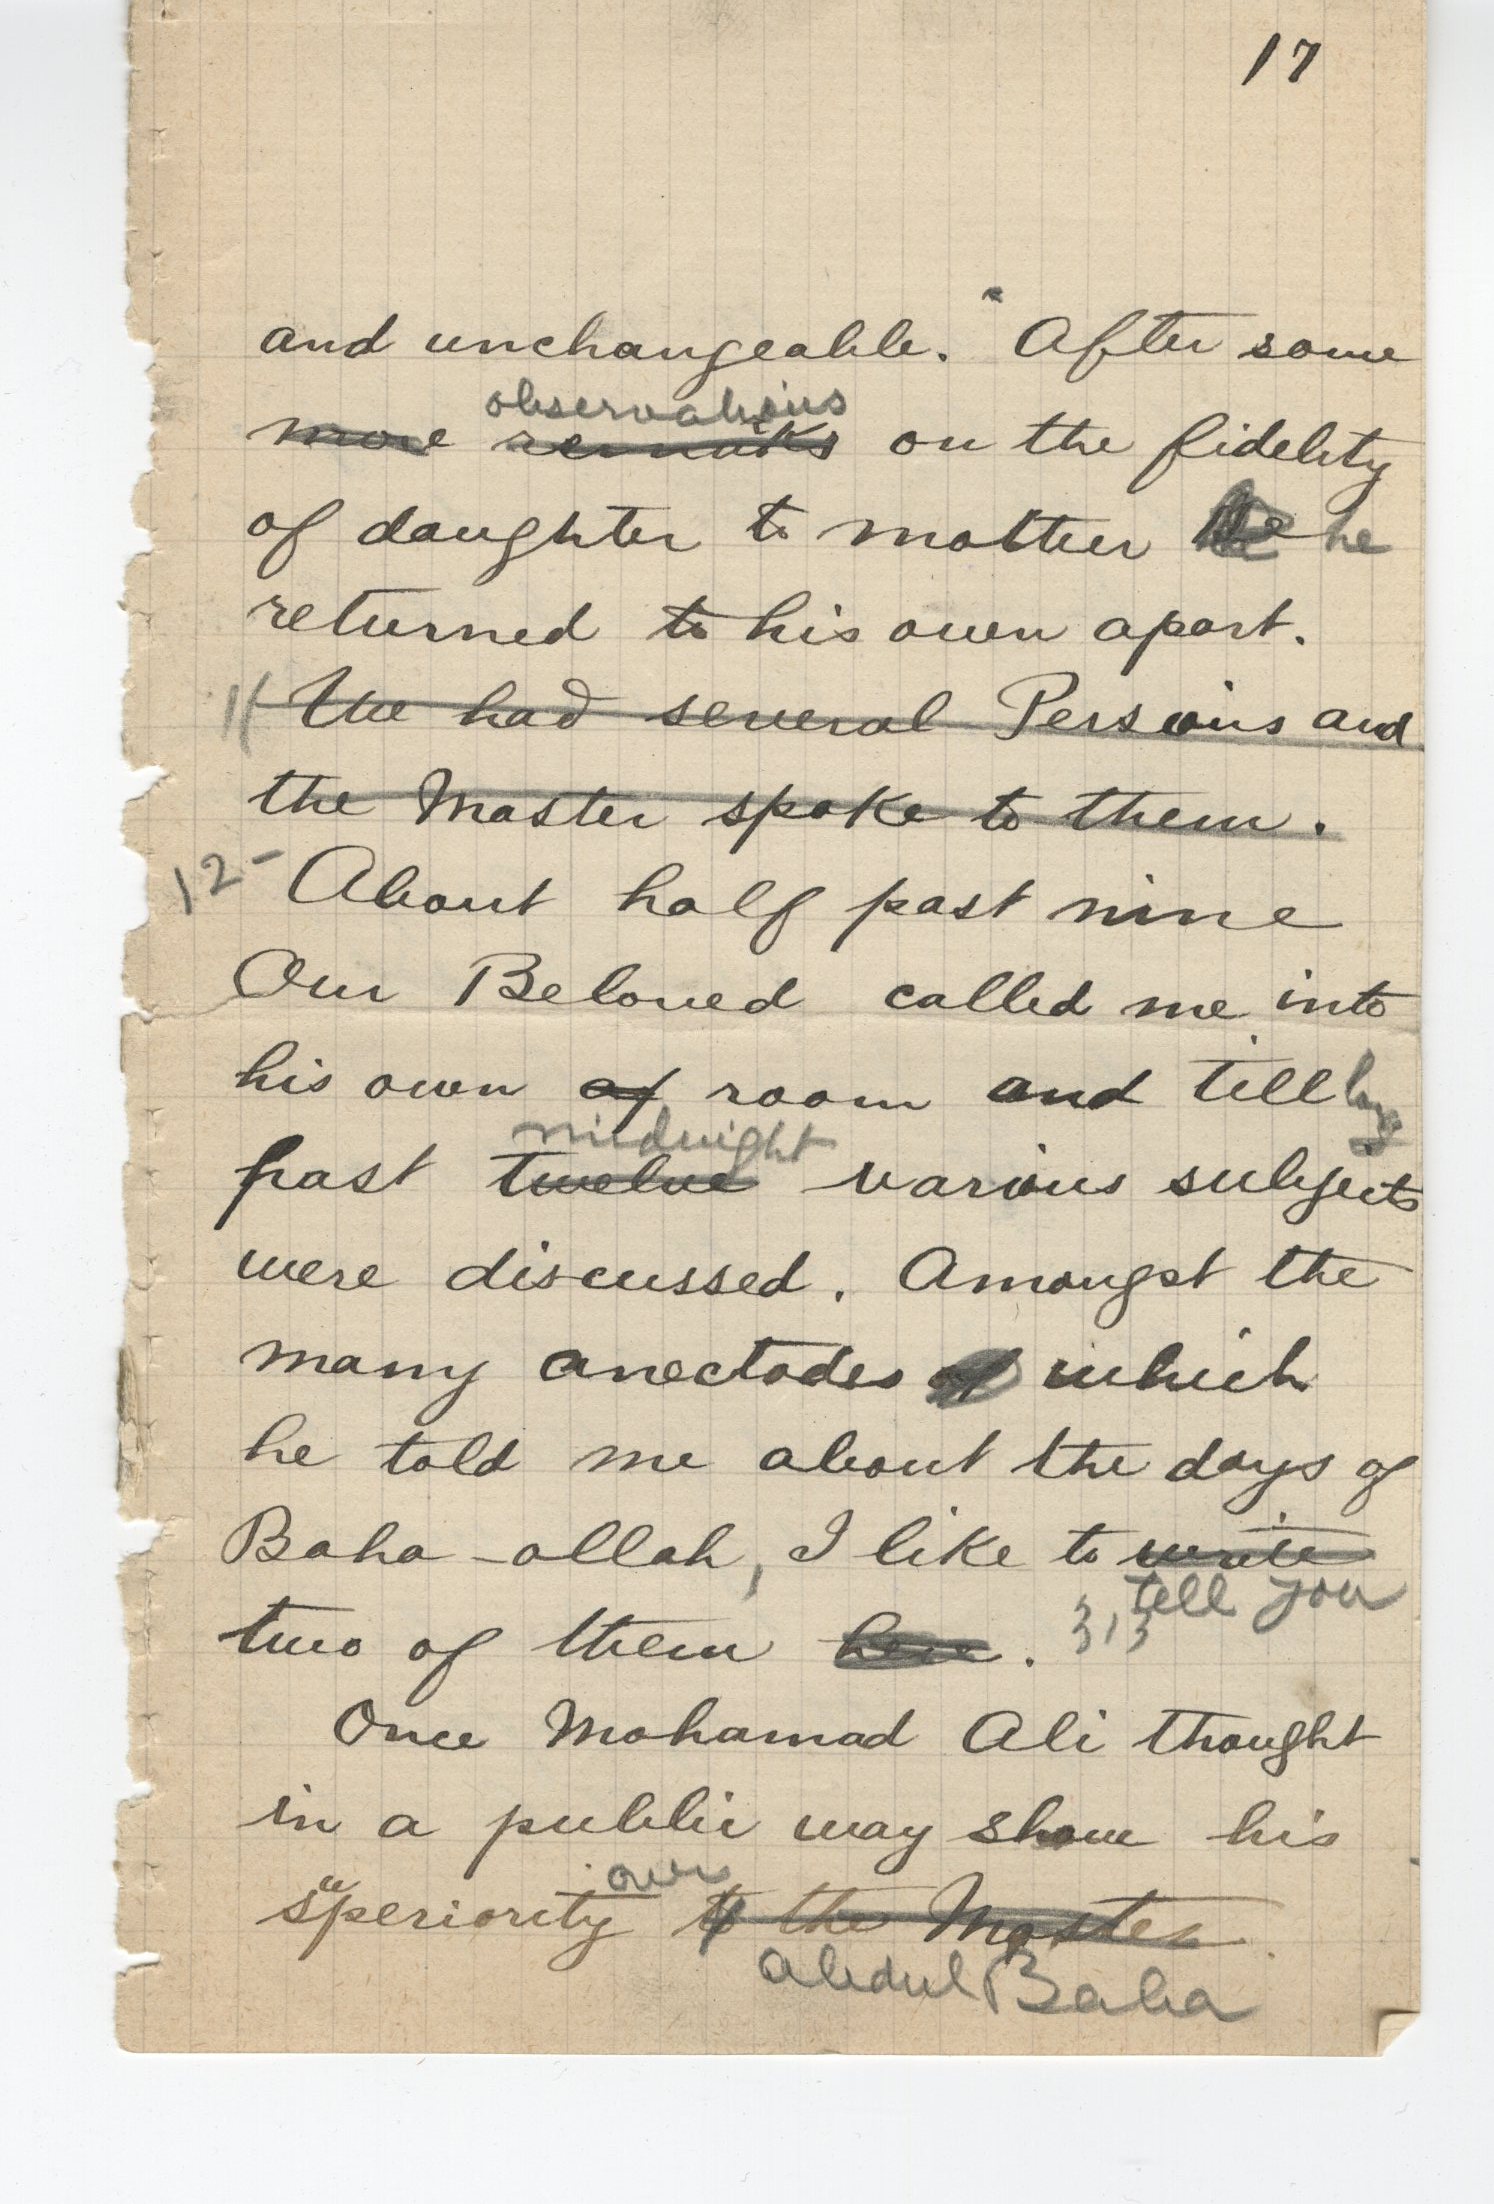 17
and unchangeable." After some
observations
more remarks on the fidelity
of daughter to mother he
returned to his own apart.
11 We had several Persians and
the Master spoke to them.
12- About half past nine
Our Beloved called me into
his own of room and till long
midnight
past twelve various subjects
were discussed. Amongst the
many anectodes which
he told me about the days of
Baha-ollah, I like to write
tell you
two of them here.
Once Mohamad Ali thought
in a public way show his
over
superiority to the Master.
Abdul Baha